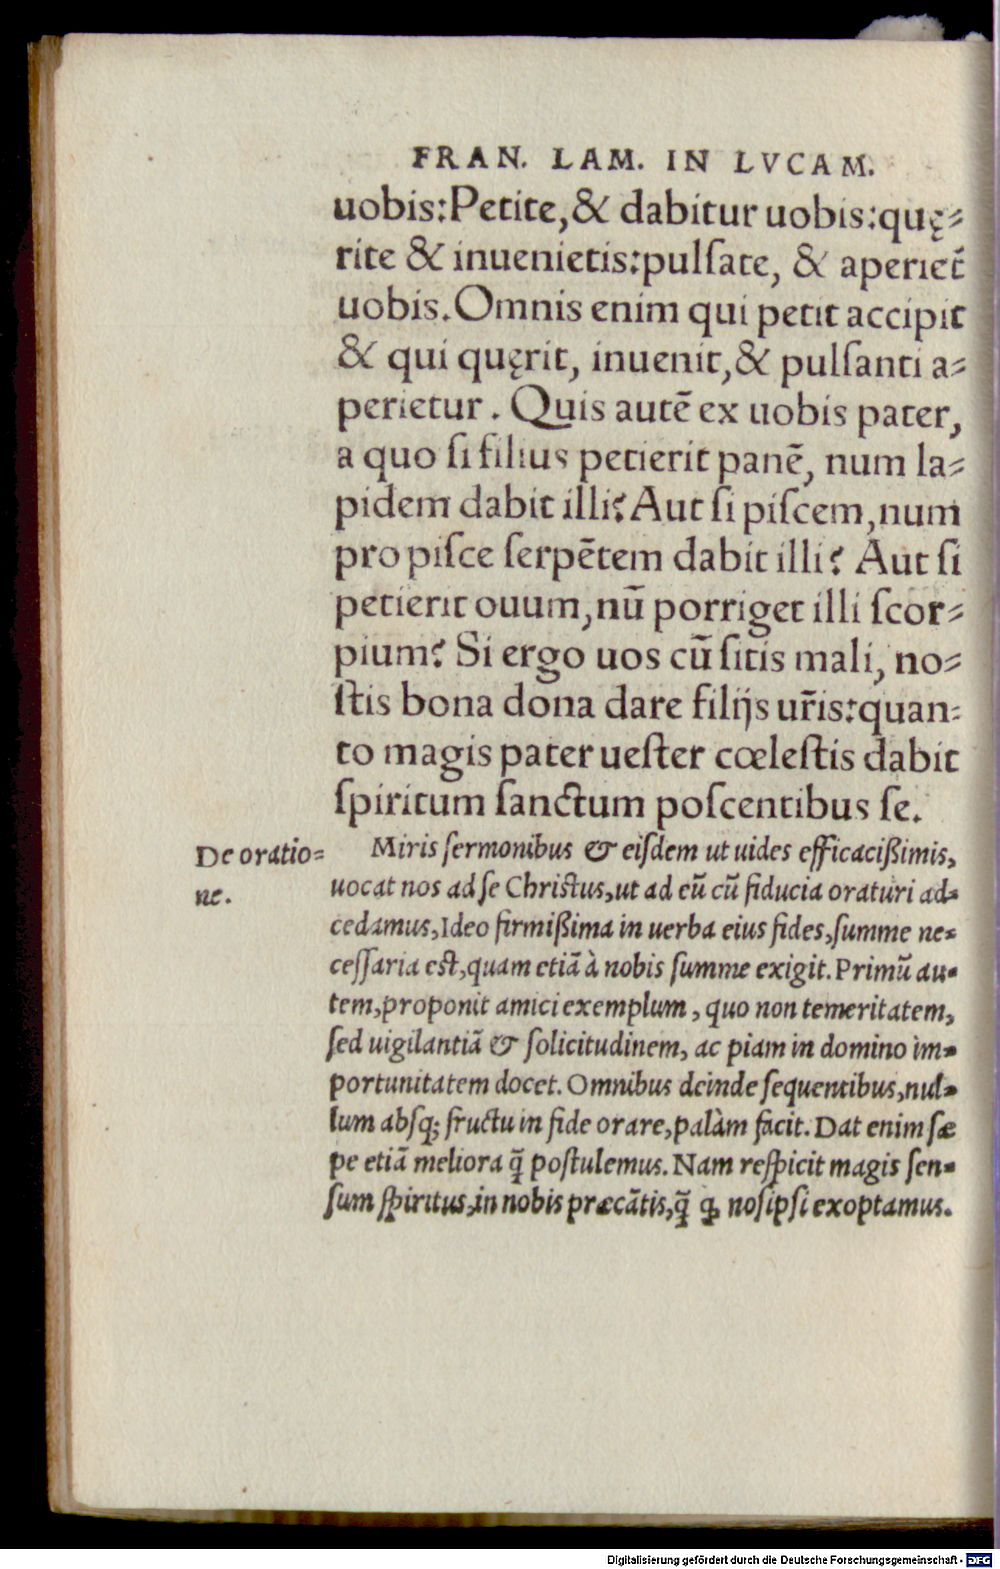 FRAN. LAM. IN LVCAM.
uobis:Petite,& dabitur uobis:quę⸗
rite & inuenietis:pulſate, & aperiet᷑
uobis.Omnis enim qui petit accipit
& qui quęrit, inuenit,& pulſanti a⸗
perietur. Quis autē ex uobis pater,
a quo ſi filius petierit panē, num la⸗
pidem dabit illi? Aut ſi piſcem,num
pro piſce ſerpētem dabit illi? Aut ſi
petierit ouum,nū porriget illi ſcor⸗
pium? Si ergo uos cū ſitis mali, no⸗
ſtis bona dona dare filijs ur̃is:quan⸗
to magis pater ueſter cœleſtis dabit
ſpiritum ſanctum poſcentibus ſe.
De oratio⸗
ne.
Miris ſermonibus & eiſdem ut uides efficacißimis,
uocat nos ad ſe Chriſtus,ut ad eū cū fiducia oraturi ad⸗
cedamus,Ideo firmißima in uerba eius fides,ſumme ne⸗
ceſſaria eſt,quam etiā à nobis ſumme exigit. Primū au⸗
tem,proponit amici exemplum, quo non temeritatem,
ſed uigilantiā & ſolicitudinem, ac piam in domino im⸗
portunitatem docet. Omnibus deinde ſequentibus,nul⸗
lum abſq; fructu in fide orare,palàm facit. Dat enim ſæ
pe etiā meliora q̃ poſtulemus. Nam reſpicit magis ſen⸗
ſum ſpiritus,in nobis præcātis,q̃ ꝙ noſipſi exoptamus.
Digitalisierung gefördert durch die Deutsche Forschungsgemeinschaft - DFG